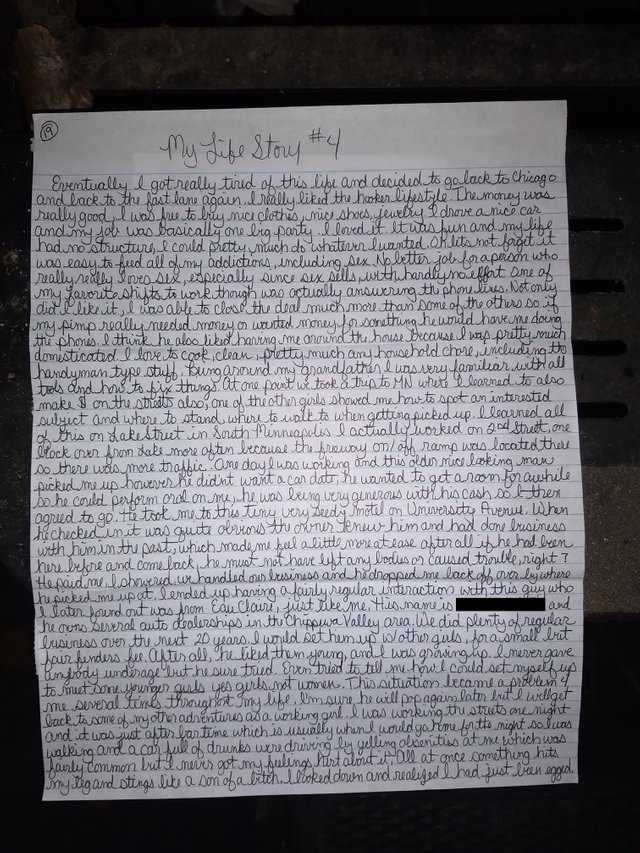 19
My Life Story #4
Eventually I got really tired of this life and decided to go back to Chicago
and back to the fast lane again. I really liked the hooker lifestyle. The money was
really good, I was free to buy nice clothes, nice shoes, jewelry I drove a nice car
and my job was basically one big party. I loved it. It was fun and my life
had no structure, I could pretty much do whatever I wanted. Oh lets not forget it
was easy to feed all of my addictions, including sex. No better job for a person who
really really loves sex, especially since sex sells, with hardly no effort. One of
my favorite shifts to work though was actually answering the phone lines. Not only
did I like it, I was able to close the deal much more than some of the others so if
my pimp really needed money or wanted money for something he would have me doing
the phones. I think he also liked having me around the house because I was pretty much
domesticated. I love to cook, clean, pretty much any household chore, including the
handyman type stuff. Being around my grandfather I was very familiar with all
tools and how to fix things. At one point we took a trip to MN where I learned to also
make $ on the streets also, one of the other girls showed me how to spot an interested
subject and where to stand, where to walk to when getting picked up. I learned all
of this on Lake Street in South Minneapolis. I actually worked on 2nd Street, one
block over from Lake more often because the freeway on/off ramp was located there
so there was more traffic. One day I was working and this older nice looking man
picked me up however he didnt want a car date, he wanted to get a room for awhile
so he could perform oral on me, he was being very generous with his cash so I then
agreed to go. He took me to this tiny very seedy motel on University Avenue. When
he checked in it was quite obvious the owner knew him and had done business
with him in the past, which made me feel a little more at ease after all if he had been
here before and come back, he must not have left any bodies or caused trouble, right?
He paid me, I showered, we handled our business and he dropped me back off over by where
he picked me up at. I ended up having a fairly regular interaction with this guy who
I later found out was from Eau Claire, just like me. His name is and
he owns several auto dealerships in the Chippwa Valley area. We did plenty of regular
business over the next 20 years. I would set him up w/other girls, for a small but
fair finders fee. After all, he liked them young, and I was growing up. I never gave
anybody underage but he sure tried. Even tried to tell me how I could set myself up
to meet some younger girls yes girls not women. This situation became a problem 4
me several times throughout my life. Im sure he will pop again later but I will get
back to some of my other adventures as a working girl. I was working the streets one night
and it was just after bar time which is usually when I would go home for the night so I was
walking and a car full of drunks were driving by yelling obsenities at me which was
fairly common but I never got my feelings hurt about it. All at once something hits
my leg and stings like a son of a bitch. I looked down and realized I had just been egged.